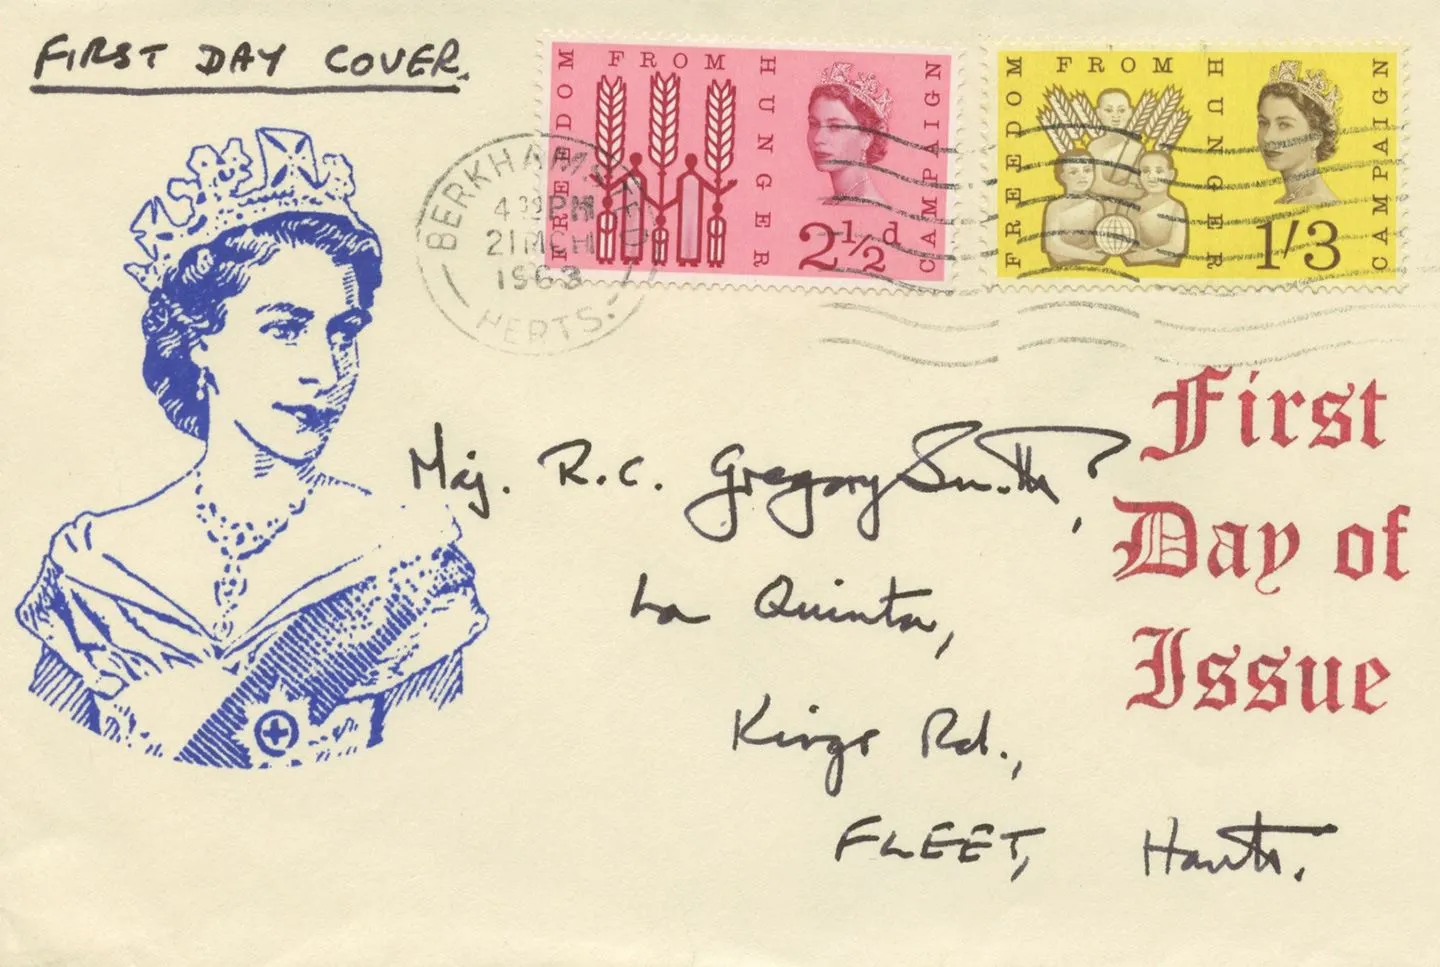 FIRST DAY COVER.
FREEDOM FROM HUNGER CAMPAIGN
2½d
FREEDOM FROM HUNGER CAMPAIGN
1/3
BERKHAMSTED
PM
21 MCH
1963
HERTS.
First
Day of
Issue
Maj. R.C. Gregory Smith,
La Quinta,
Kings Rd.,
FLEET, Hants.